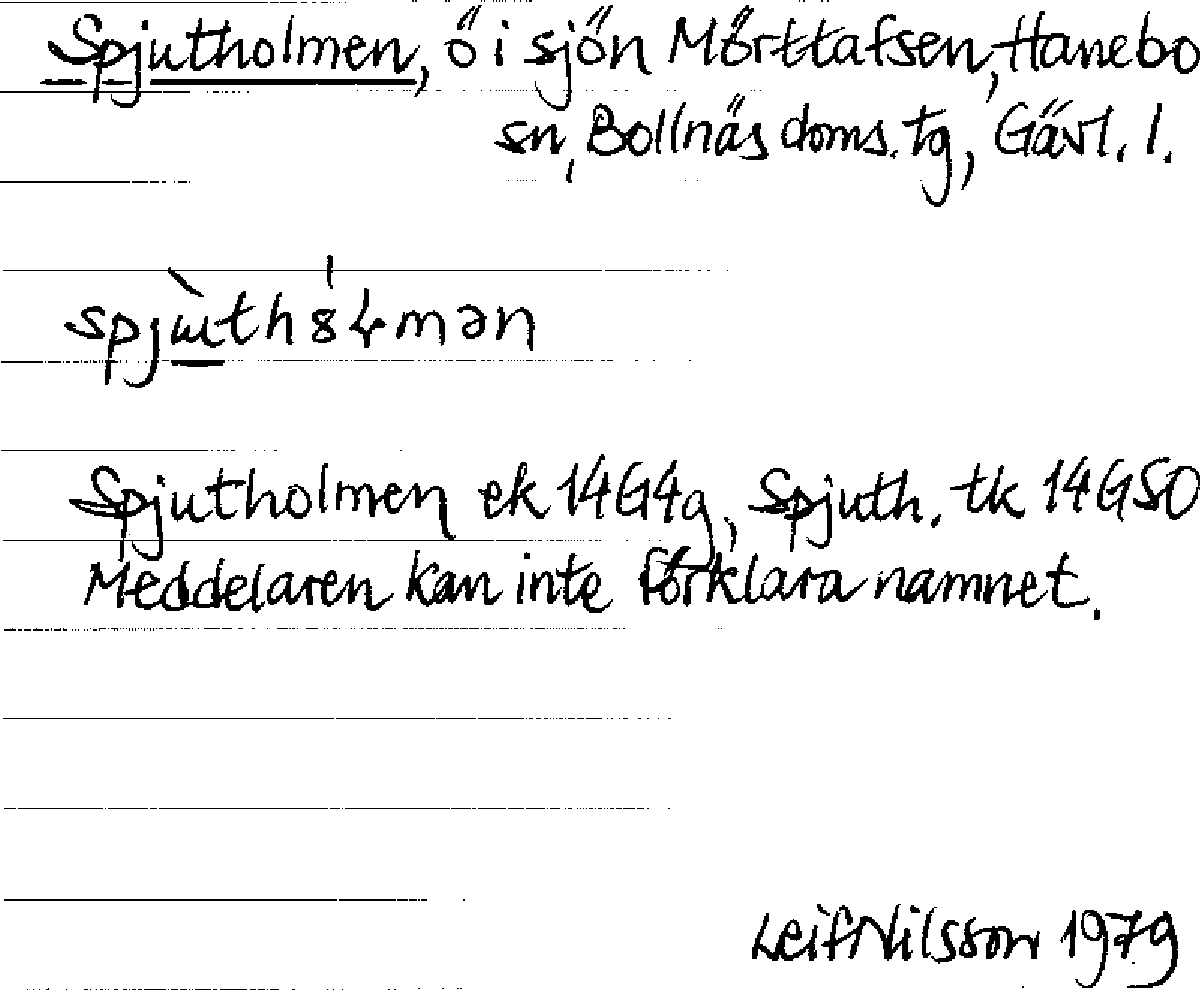 Spjutholmen, ö i sjön Mörttafsen, Hanebo
sn, Bollnäs doms. tg, Gävl. l.
Spjutholmen ek 14G4g, Spjuth. tk 14GSO
Meddelaren kan inte förklara namnet.
Leif Nilsson 1979